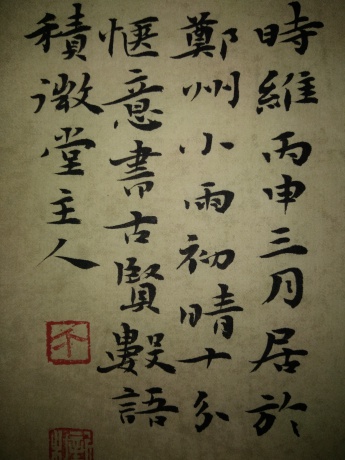 時維丙申三月居於
鄭州小雨初晴十分
惬意書古賢數語
積微堂主人
不